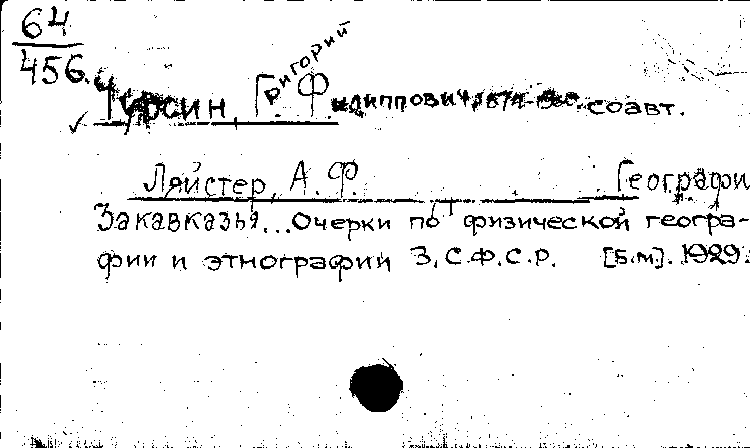 64
456.
Чурсин, Григорий Филиппович, 1874-1930. соавт.
Ляйстер, А. Ф. Географи
Закавказья... Очерки по физической геогра-
фии и этнографии З.С.Ф.С.Р. [Б.м]. 1929.